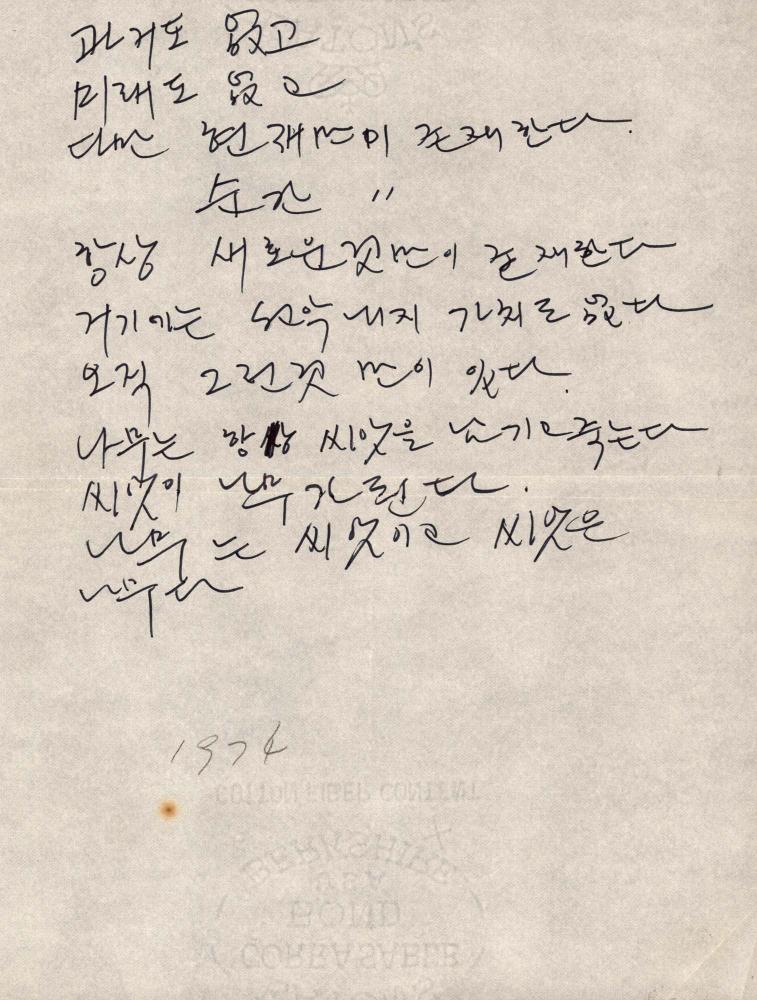 과거도 없고
미래도 없고
다만 현재만이 존재한다.
순간 〃
항상 새로운것만이 존재한다
거기에는 선악 내지 가치도 없다
오직 그런것 만이 있다.
나무는 항상 씨앗을 남기고 죽는다
씨앗이 나무가 된다.
나무는 씨앗이고 씨앗은
나무다
1974
COTTON FIBER CONTENT
BERKSHIRE
BOND
CORRASABLE